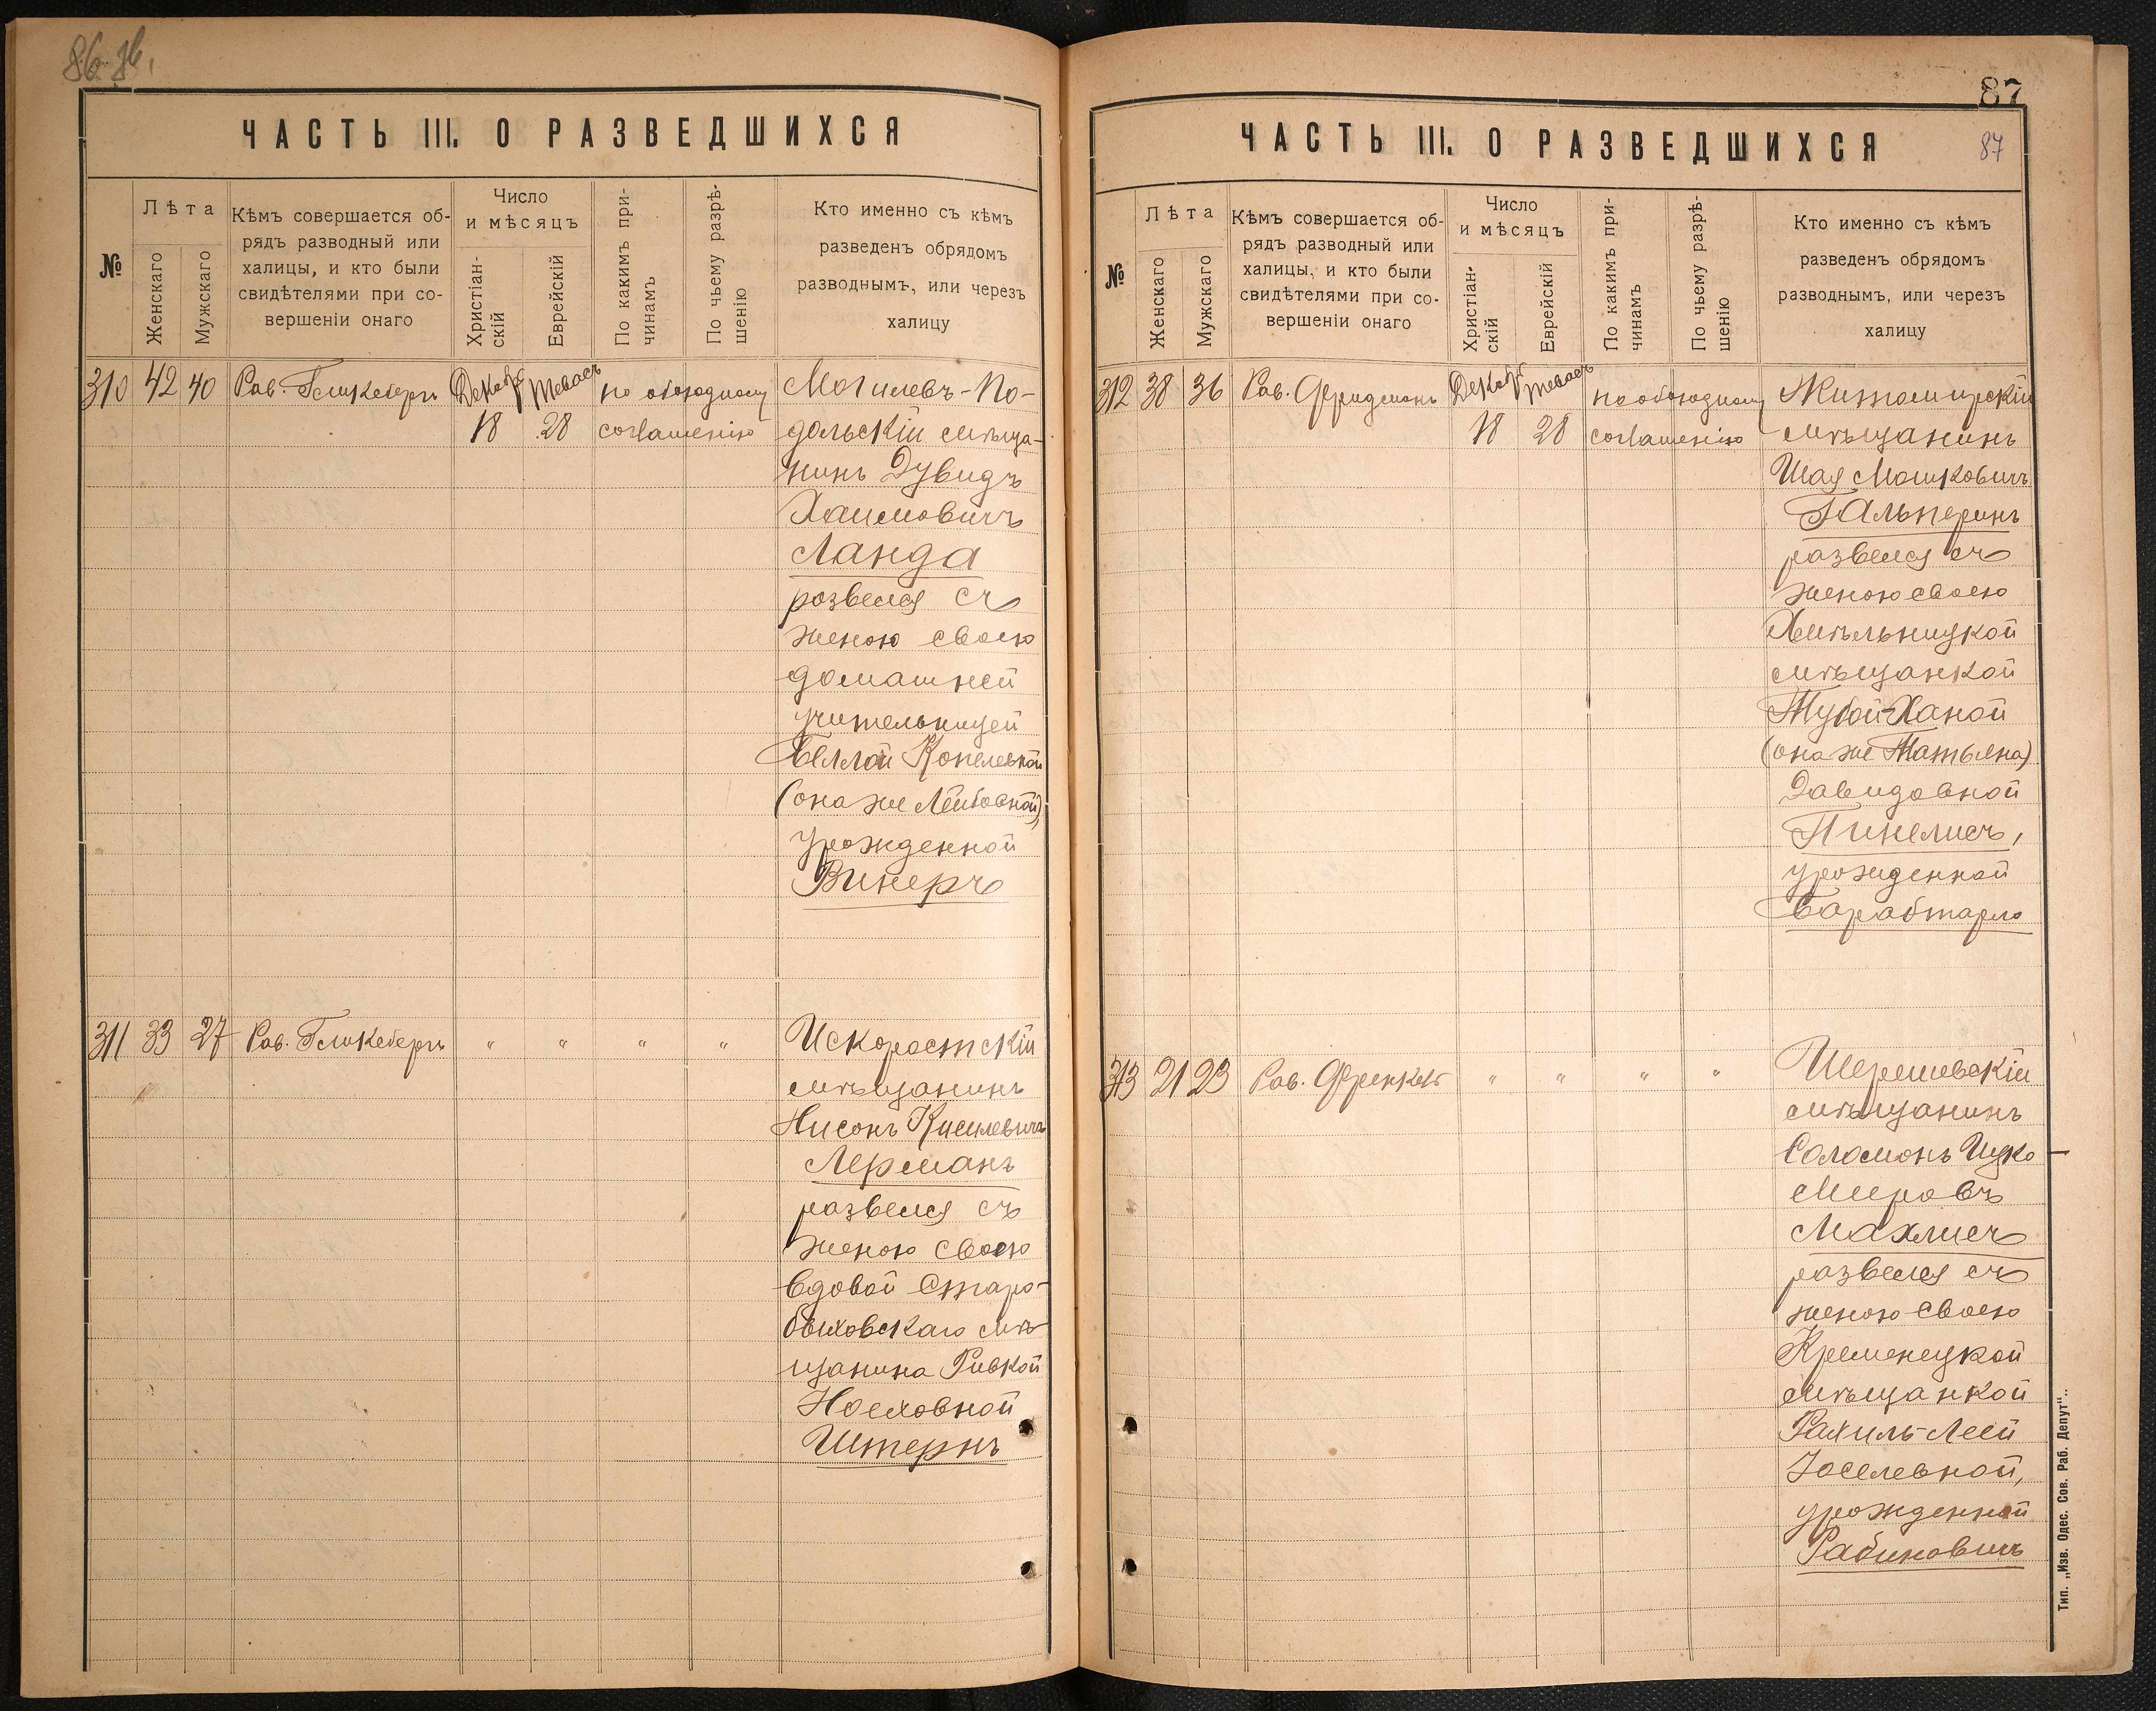 86
87
ЧАСТЬ III. О РАЗВЕДШИХСЯ
№
Лѣта
Женскаго
Мужскаго
Кѣмъ совершается об-
рядъ разводный или
халицы, и кто были
свидѣтелями при со-
вершеніи онаго
Число
и мѣсяцъ
Христіан-
скій
Еврейскій
По какимъ при-
чинамъ
По чьему разрѣ-
шенію
Кто именно съ кѣмъ
разведенъ обрядомъ
разводнымъ, или черезъ
халицу
310 42 40 Рав. Гликсбергъ Декабр 18 Теваєсъ 28 по обоюдному
соглашенію
Могилевъ-По-
дольскій мѣща-
нинъ Дувидъ
Хаимовичъ
Ланда
развелся съ
женою своею
домашней
учительницей
Беллой Копелевной
(она же Лейбовной)
урожденной
Винеръ
311 33 27 Рав. Гликсбергъ " " " "
Искоростскій
мѣщанинъ
Нисонъ Кисилевичъ
Лерманъ
развелся съ
женою своею
вдовой Старо-
быховскаго мѣ-
щанина Ривкой
Ноеховной
Штернъ
87
ЧАСТЬ III. О РАЗВЕДШИХСЯ
№
Лѣта
Женскаго
Мужскаго
Кѣмъ совершается об-
рядъ разводный или
халицы, и кто были
свидѣтелями при со-
вершеніи онаго
Число
и мѣсяцъ
Христіан-
скій
Еврейскій
По какимъ при-
чинамъ
По чьему разрѣ-
шенію
Кто именно съ кѣмъ
разведенъ обрядомъ
разводнымъ, или черезъ
халицу
312 38 36 Рав. Фридманъ Декабр 18 Теваєсъ 28 по обоюдному
соглашенію
Житомирскій
мѣщанинъ
Шая Мошковичъ
Гальперинъ
развелся съ
женою своею
Хмѣльницкой
мѣщанкой
Тубой-Ханой
(она же Татьяна)
Давидовной
Пинелисъ,
урожденной
Барабтарло
313 21 23 Рав. Френкель " " " "
Шерешевскій
мѣщанинъ
Соломонъ Ицко-
Мееровъ
Махлисъ
развелся съ
женою своею
Кременецкой
мѣщанкой
Рахиль-Леей
Іоселевной,
урожденной
Рабиновичъ
Тип. „Изв. Одес. Сов. Раб. Депут".